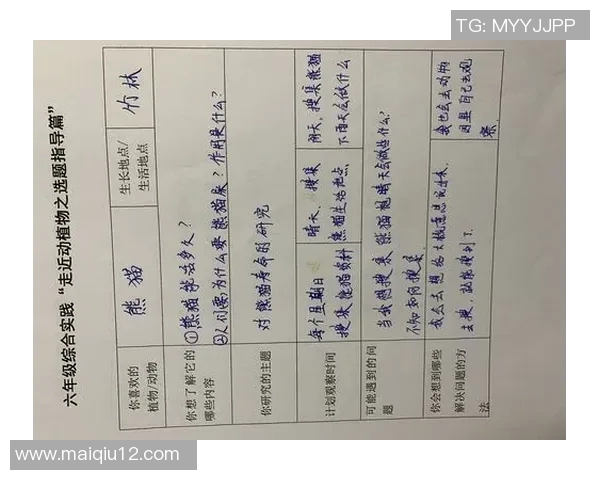 TG: MYYJJPP
六年级综合实践“走近动植物之选题指导篇”
你喜欢的
植物/动物
熊猫
生长地点/
生活地点
竹林
你想了解它的
哪些内容
①熊猫能活多久？
②人们要为什么要熊猫来？作用是什么？
你研究的主题
对熊猫寿命的研究
计划观察时间
每个星期日
搜集熊猫资料
晴天，搜集
熊猫生活地点
阴天，搜集熊猫
下雨天会做什么
可能遇到的问
题
当我想搜集熊猫晴天会做些什么？
不知如何搜集
你会想到哪些
解决问题的方
法
我会去想 大概意思
去搜，就能搜到了。
我也会去动物
园里自己去观
察
www.maiqiu12.com